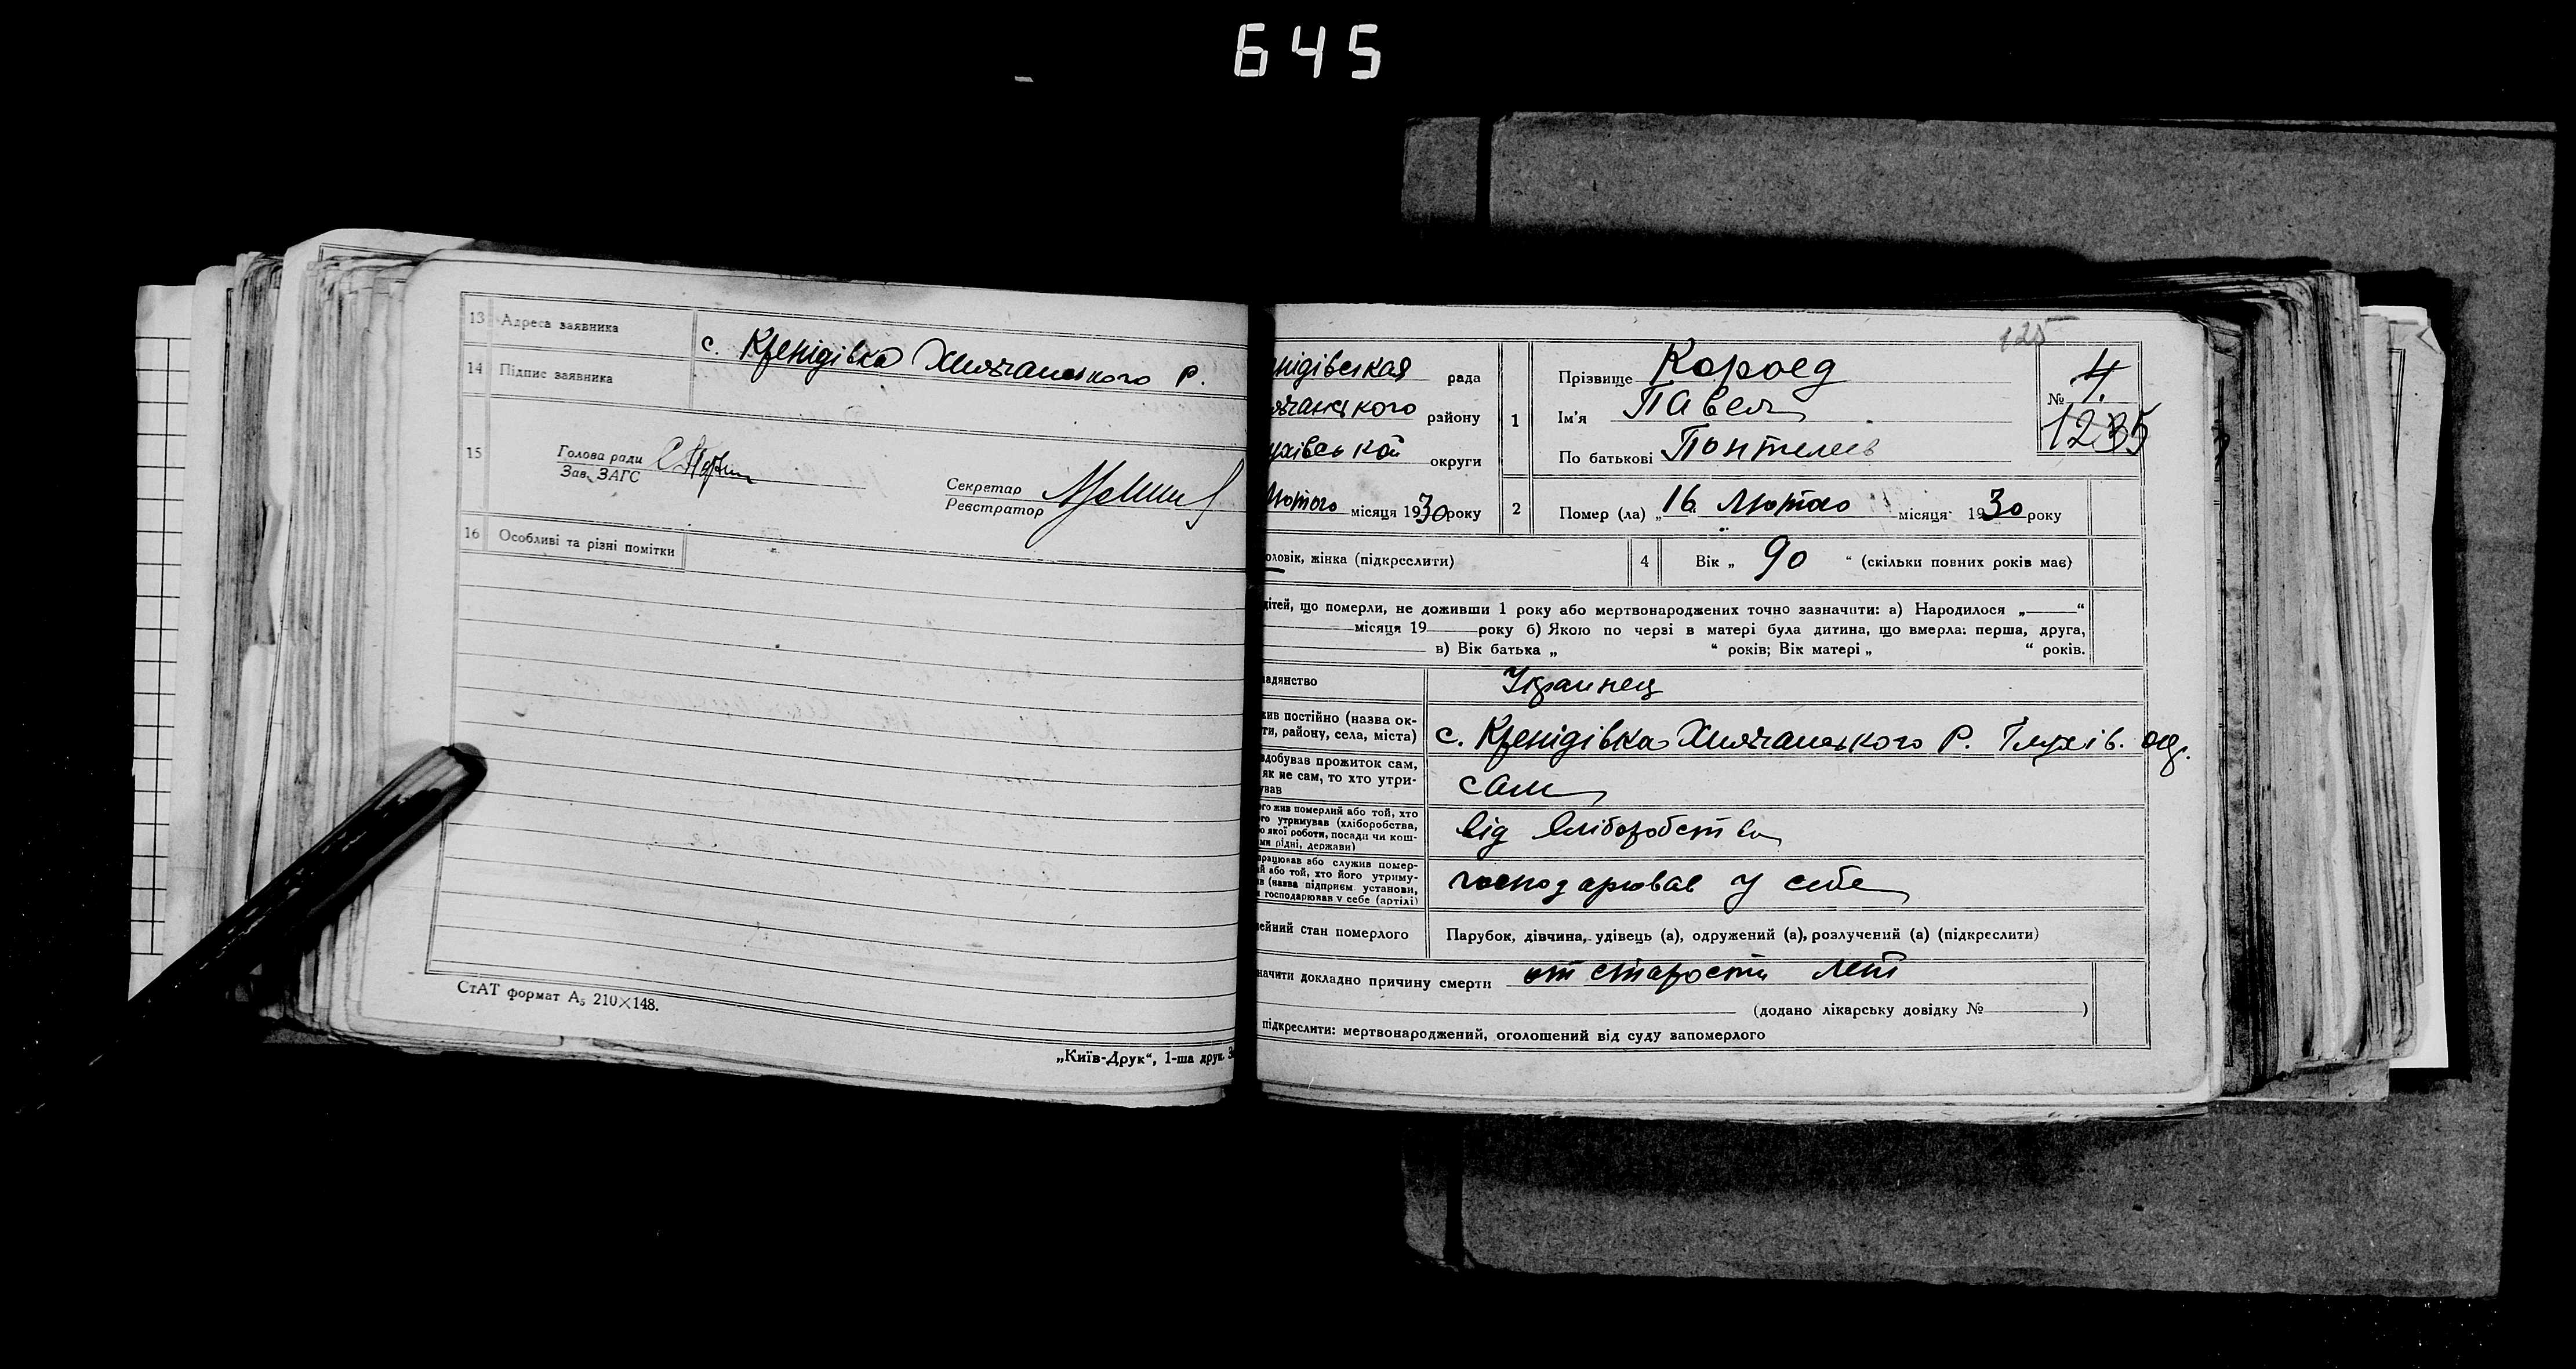 645
13 Адреса заявника
с. Кренидівка Хильчанського р.
14 Підпис заявника
15
Голова ради
Зав. ЗАГС
Секретар
Реєстратор
16 Особливі та різні помітки
СтАТ формат А₅ 210×148.
„Київ-Друк“, 1-ша друк.
125
нидівская рада
ьчанського району
ухівськой округи
Лютого місяця 1930 року
1
Прізвище Короед
Ім'я Павел
По батькові Понтелев
№ 4.
1235
2 Помер (ла) „16 Лютого місяця 1930 року
оловік, жінка (підкреслити)
4 Вік „ 90 “ (скільки повних років має)
дітей, що померли, не доживши 1 року або мертвонароджених точно зазначити: а) Народилося „ “
місяця 19 року б) Якою по черзі в матері була дитина, що вмерла: перша, друга,
в) Вік батька „ “ років; Вік матері „ “ років.
адянство Украинец
жив постійно (назва ок-
ги, району, села, міста) с. Кренидівка Хильчанського Р. Глухів. окр.
здобував прожиток сам,
як не сам, то хто утри-
ував сам
ого жив померлий або той, хто
го утримував (хліборобства,
о якої роботи, посади чи кош-
ми рідні, держави) від хліборобства
працював або служив помер-
й або той, хто його утриму-
в (назва підприєм. установи,
и господарював у себе (артілі) господарював у себе
ейний стан померлого Парубок, дівчина, удівець (а), одружений (а), розлучений (а) (підкреслити)
начити докладно причину смерти от старости лет
(додано лікарську довідку № )
підкреслити: мертвонароджений, оголошений від суду запомерлого